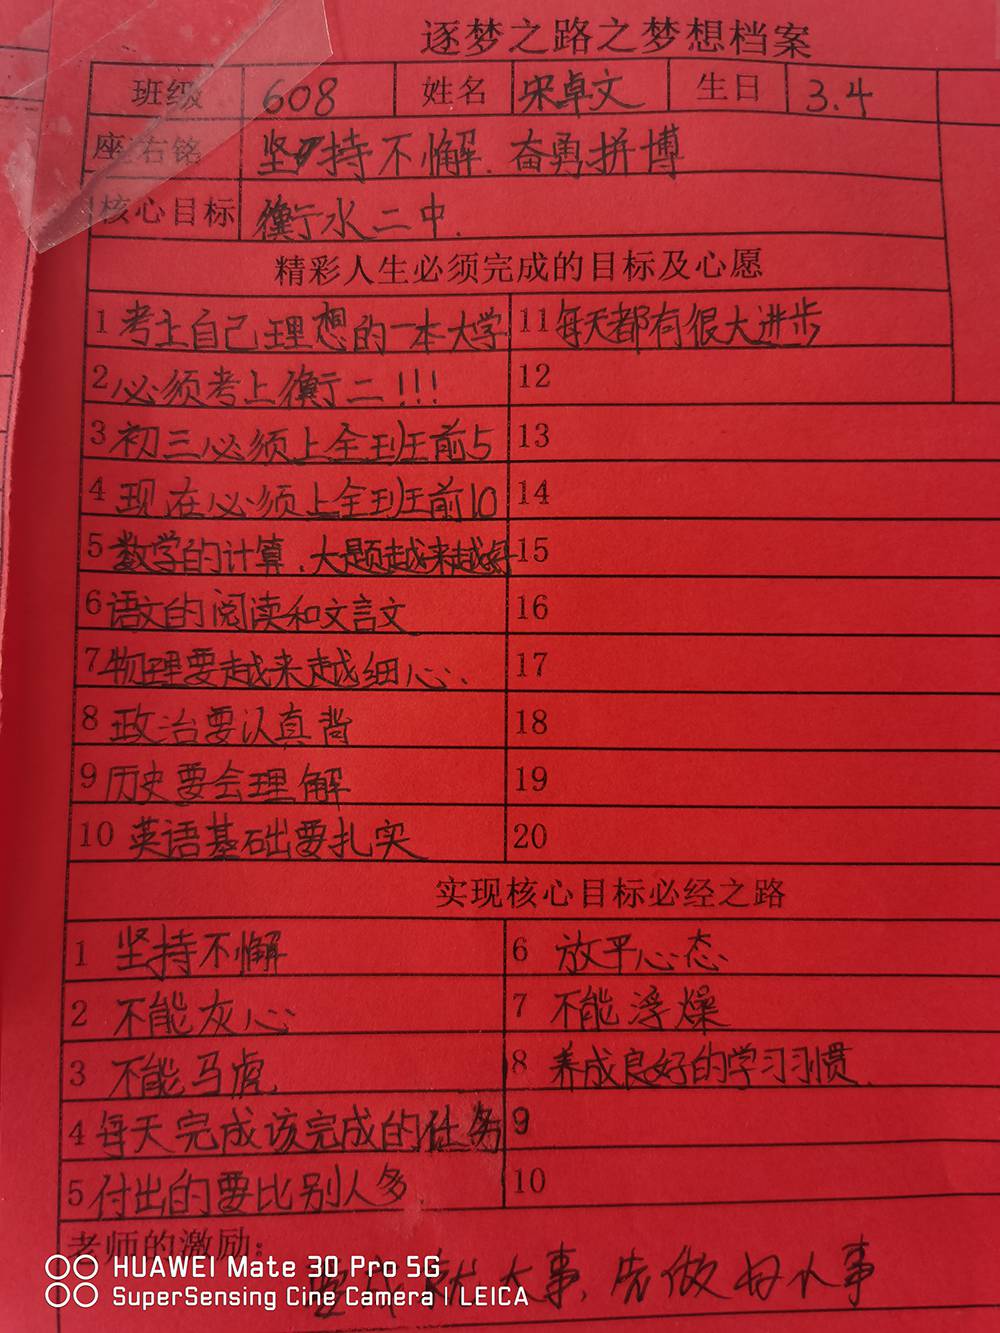 逐梦之路之梦想档案
班级 608 姓名 宋卓文 生日 3.4
座右铭 坚持不懈.奋勇拼博
核心目标 衡水二中.
精彩人生必须完成的目标及心愿
1 考上自己理想的一本大学 11 每天都有很大进步
2 必须考上衡二!!! 12
3 初三必须上全班前5 13
4 现在必须上全班前10 14
5 数学的计算、大题越来越好 15
6 语文的阅读和文言文 16
7 物理要越来越细心、 17
8 政治要认真背 18
9 历史要会理解 19
10 英语基础要扎实 20
实现核心目标必经之路
1 坚持不懈 6 放平心态
2 不能灰心 7 不能浮燥
3 不能马虎. 8 养成良好的学习习惯.
4 每天完成该完成的任务 9
5 付出的要比别人多. 10
老师的激励:
大事,先做好小事
HUAWEI Mate 30 Pro 5G
SuperSensing Cine Camera | LEICA